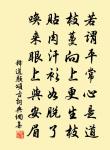 若謂平常心是道
枝蔓向上更生枝
貼肉汗衫如脫了
喚來眼上與安眉
釋道顏頌古